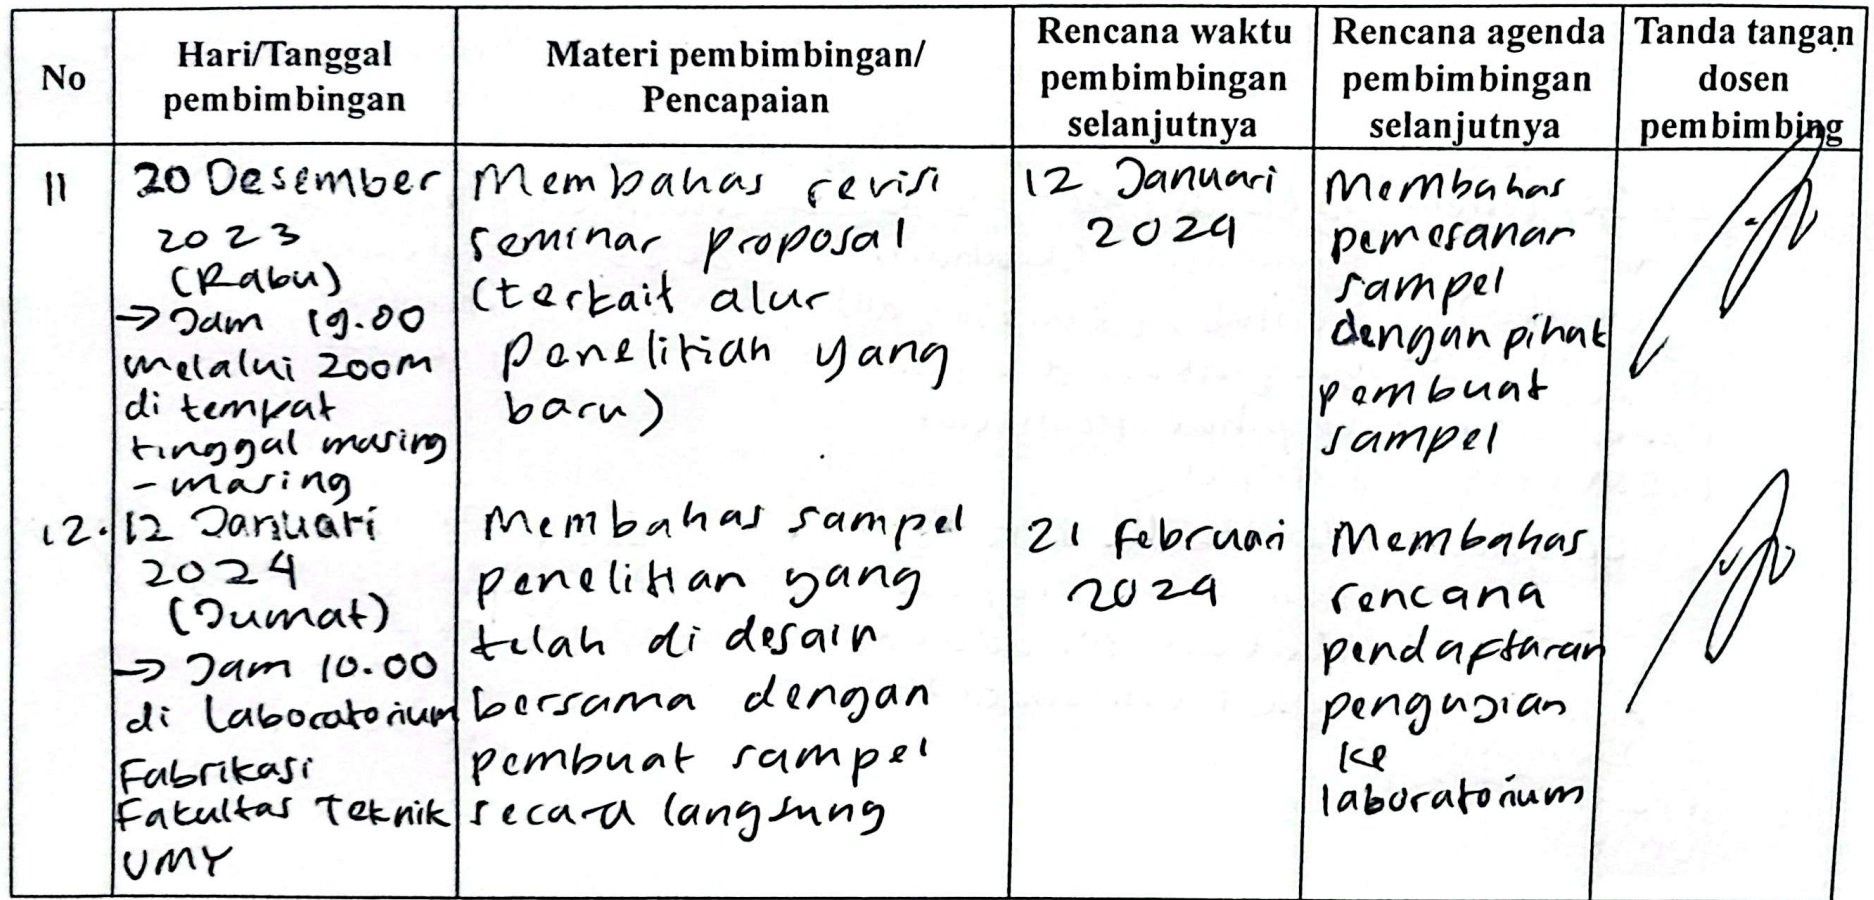 No
Hari/Tanggal
pembimbingan
Materi pembimbingan/
Pencapaian
Rencana waktu
pembimbingan
selanjutnya
Rencana agenda
pembimbingan
selanjutnya
Tanda tangan
dosen
pembimbing
11
20 Desember
2023
(Rabu)
→ Jam 19.00
melalui zoom
di tempat
tinggal masing
- masing
Membahas revisi
seminar proposal
(terkait alur
penelitian yang
baru)
12 Januari
2024
Membahas
pemesanan
sampel
dengan pihak
pembuat
sampel
12.
12 Januari
2024
(Jumat)
→ Jam 10.00
di Laboratorium
Fabrikasi
Fakultas Teknik
UMY
Membahas sampel
penelitian yang
telah di desain
bersama dengan
pembuat sampel
secara langsung
21 Februari
2024
Membahas
rencana
pendaftaran
pengujian
ke
laboratorium